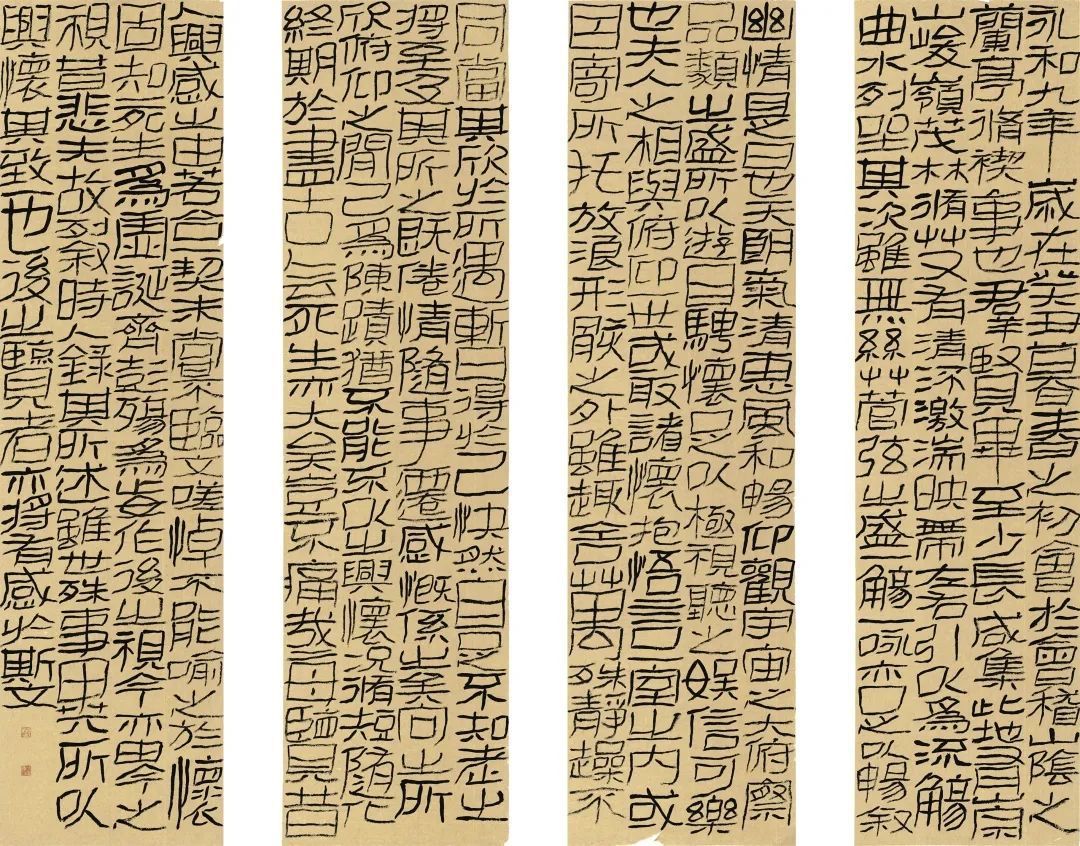 永和九年歲在癸丑暮春之初會於會稽山陰之
蘭亭脩禊事也羣賢畢至少長咸集此地有崇
山峻嶺茂林脩竹又有清流激湍映帶左右引以爲流觴
曲水列坐其次雖無絲竹管弦之盛一觴一詠亦足以暢敘
幽情是日也天朗氣清惠風和暢仰觀宇宙之大俯察
品類之盛所以遊目騁懷足以極視聽之娛信可樂
也夫人之相與俯仰一世或取諸懷抱悟言一室之內或
因寄所托放浪形骸之外雖趣舍萬殊靜躁不
同當其欣於所遇暫得於己快然自足不知老之
將至及其所之既倦情隨事遷感慨係之矣向之所
欣俯仰之間已爲陳蹟猶不能不以之興懷況脩短隨化
終期於盡古人云死生亦大矣豈不痛哉每覽昔
人興感之由若合一契未嘗不臨文嗟悼不能喻之於懷
固知一死生爲虛誕齊彭殤爲妄作後之視今亦由今之
視昔悲夫故列敘時人錄其所述雖世殊事異所以
興懷其致一也後之覽者亦將有感於斯文